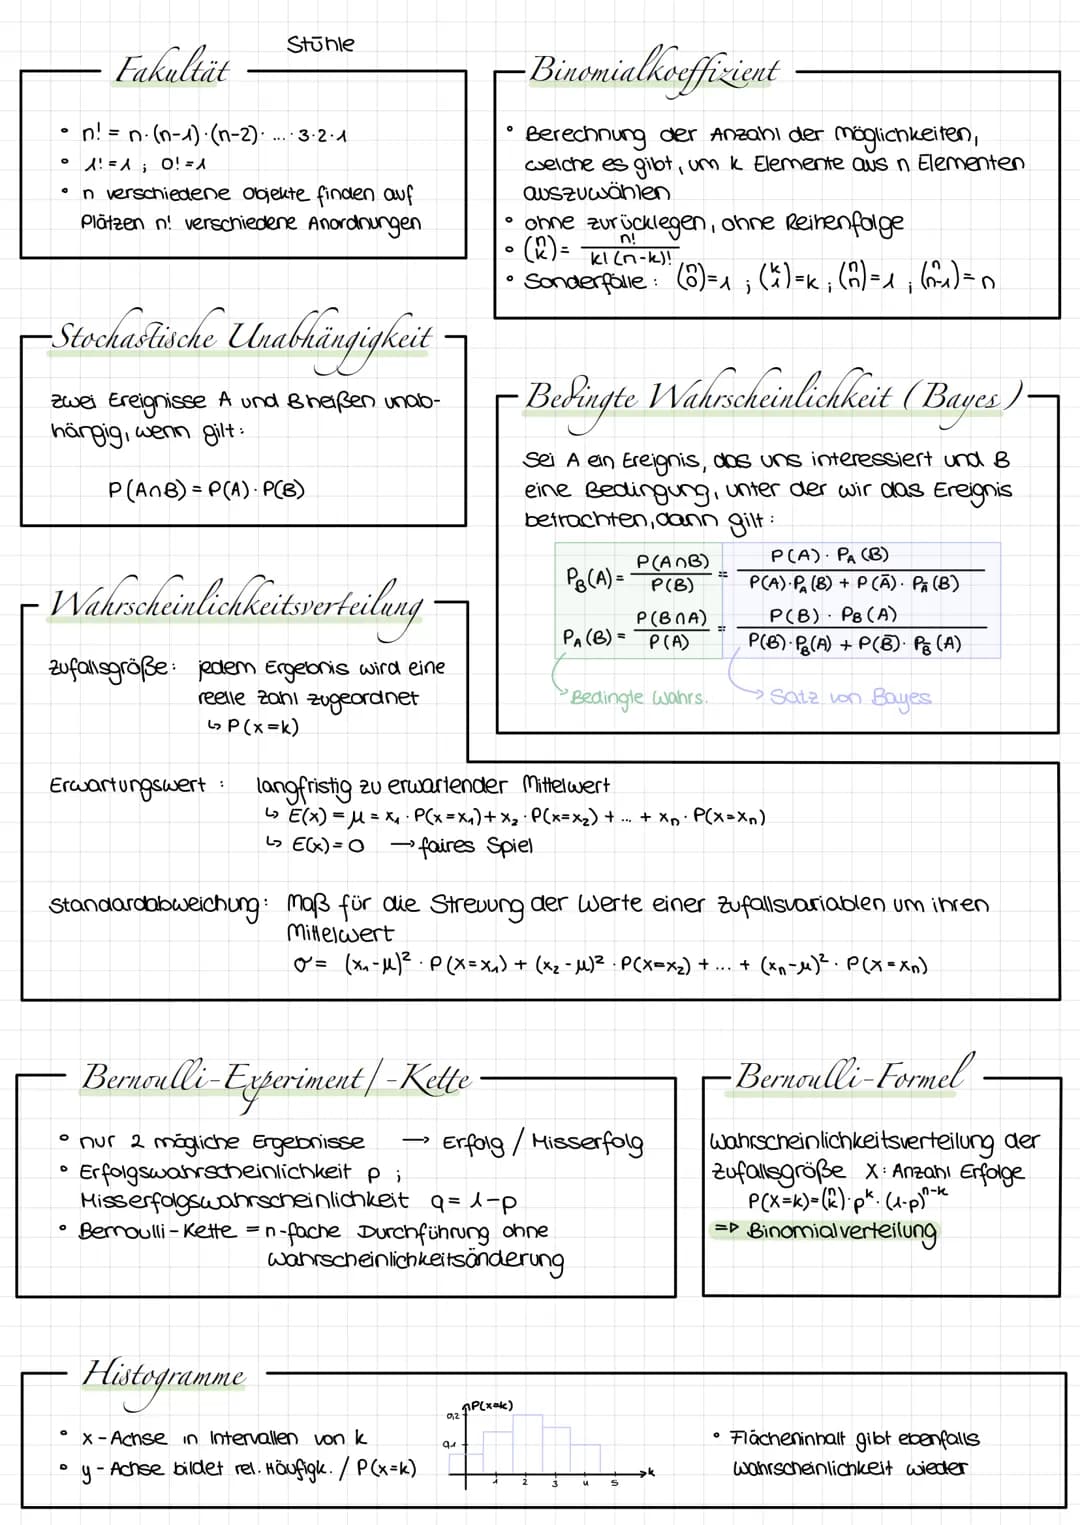 Stühle
Fakultät
• n! = n·(n-1)·(n-2)· ... ·3·2·1
• 1! = 1 ; 0! = 1
• n verschiedene Objekte finden auf
Plätzen n! verschiedene Anordnungen
Binomialkoeffizient
• Berechnung der Anzahl der Möglichkeiten,
welche es gibt, um k Elemente aus n Elementen
auszuwählen
• ohne zurücklegen, ohne Reihenfolge
• (n k) = n! / k!(n-k)!
• Sonderfälle: (n 0)=1 ; (k 1)=k ; (n n)=1 ; (n n-1)=n
Stochastische Unabhängigkeit
zwei Ereignisse A und B heißen unab-
hängig, wenn gilt:
P(A∩B) = P(A)·P(B)
Bedingte Wahrscheinlichkeit (Bayes)
Sei A ein Ereignis, das uns interessiert und B
eine Bedingung, unter der wir das Ereignis
betrachten, dann gilt:
P_B(A) = P(A∩B) / P(B) = P(A)·P_A(B) / P(A)·P_A(B) + P(Ā)·P_Ā(B)
P_A(B) = P(B∩A) / P(A) = P(B)·P_B(A) / P(B)·P_B(A) + P(B̄)·P_B̄(A)
Bedingte Wahrs.
Satz von Bayes
Wahrscheinlichkeitsverteilung
Zufallsgröße: jedem Ergebnis wird eine
reelle Zahl zugeordnet
↳ P(x=k)
Erwartungswert: langfristig zu erwartender Mittelwert
↳ E(x) = μ = x₁·P(x=x₁) + x₂·P(x=x₂) + ... + xₙ·P(x=xₙ)
↳ E(x)=0 → faires Spiel
Standardabweichung: Maß für die Streuung der Werte einer Zufallsvariablen um ihren
Mittelwert
σ = (x₁-μ)²·P(x=x₁) + (x₂-μ)²·P(x=x₂) + ... + (xₙ-μ)²·P(x=xₙ)
Bernoulli-Experiment/-Kette
• nur 2 mögliche Ergebnisse → Erfolg / Misserfolg
• Erfolgswahrscheinlichkeit p ;
Misserfolgswahrscheinlichkeit q = 1-p
• Bernoulli-Kette = n-fache Durchführung ohne
Wahrscheinlichkeitsänderung
Bernoulli-Formel
Wahrscheinlichkeitsverteilung der
Zufallsgröße X: Anzahl Erfolge
P(X=k)=(n k)·p^k·(1-p)^n-k
⇒ Binomialverteilung
Histogramme
• x-Achse in Intervallen von k
• y-Achse bildet rel. Häufigk. / P(x=k)
P(x=k)
0,2
0,1
1 2 3 4 5
k
• Flächeninhalt gibt ebenfalls
Wahrscheinlichkeit wieder